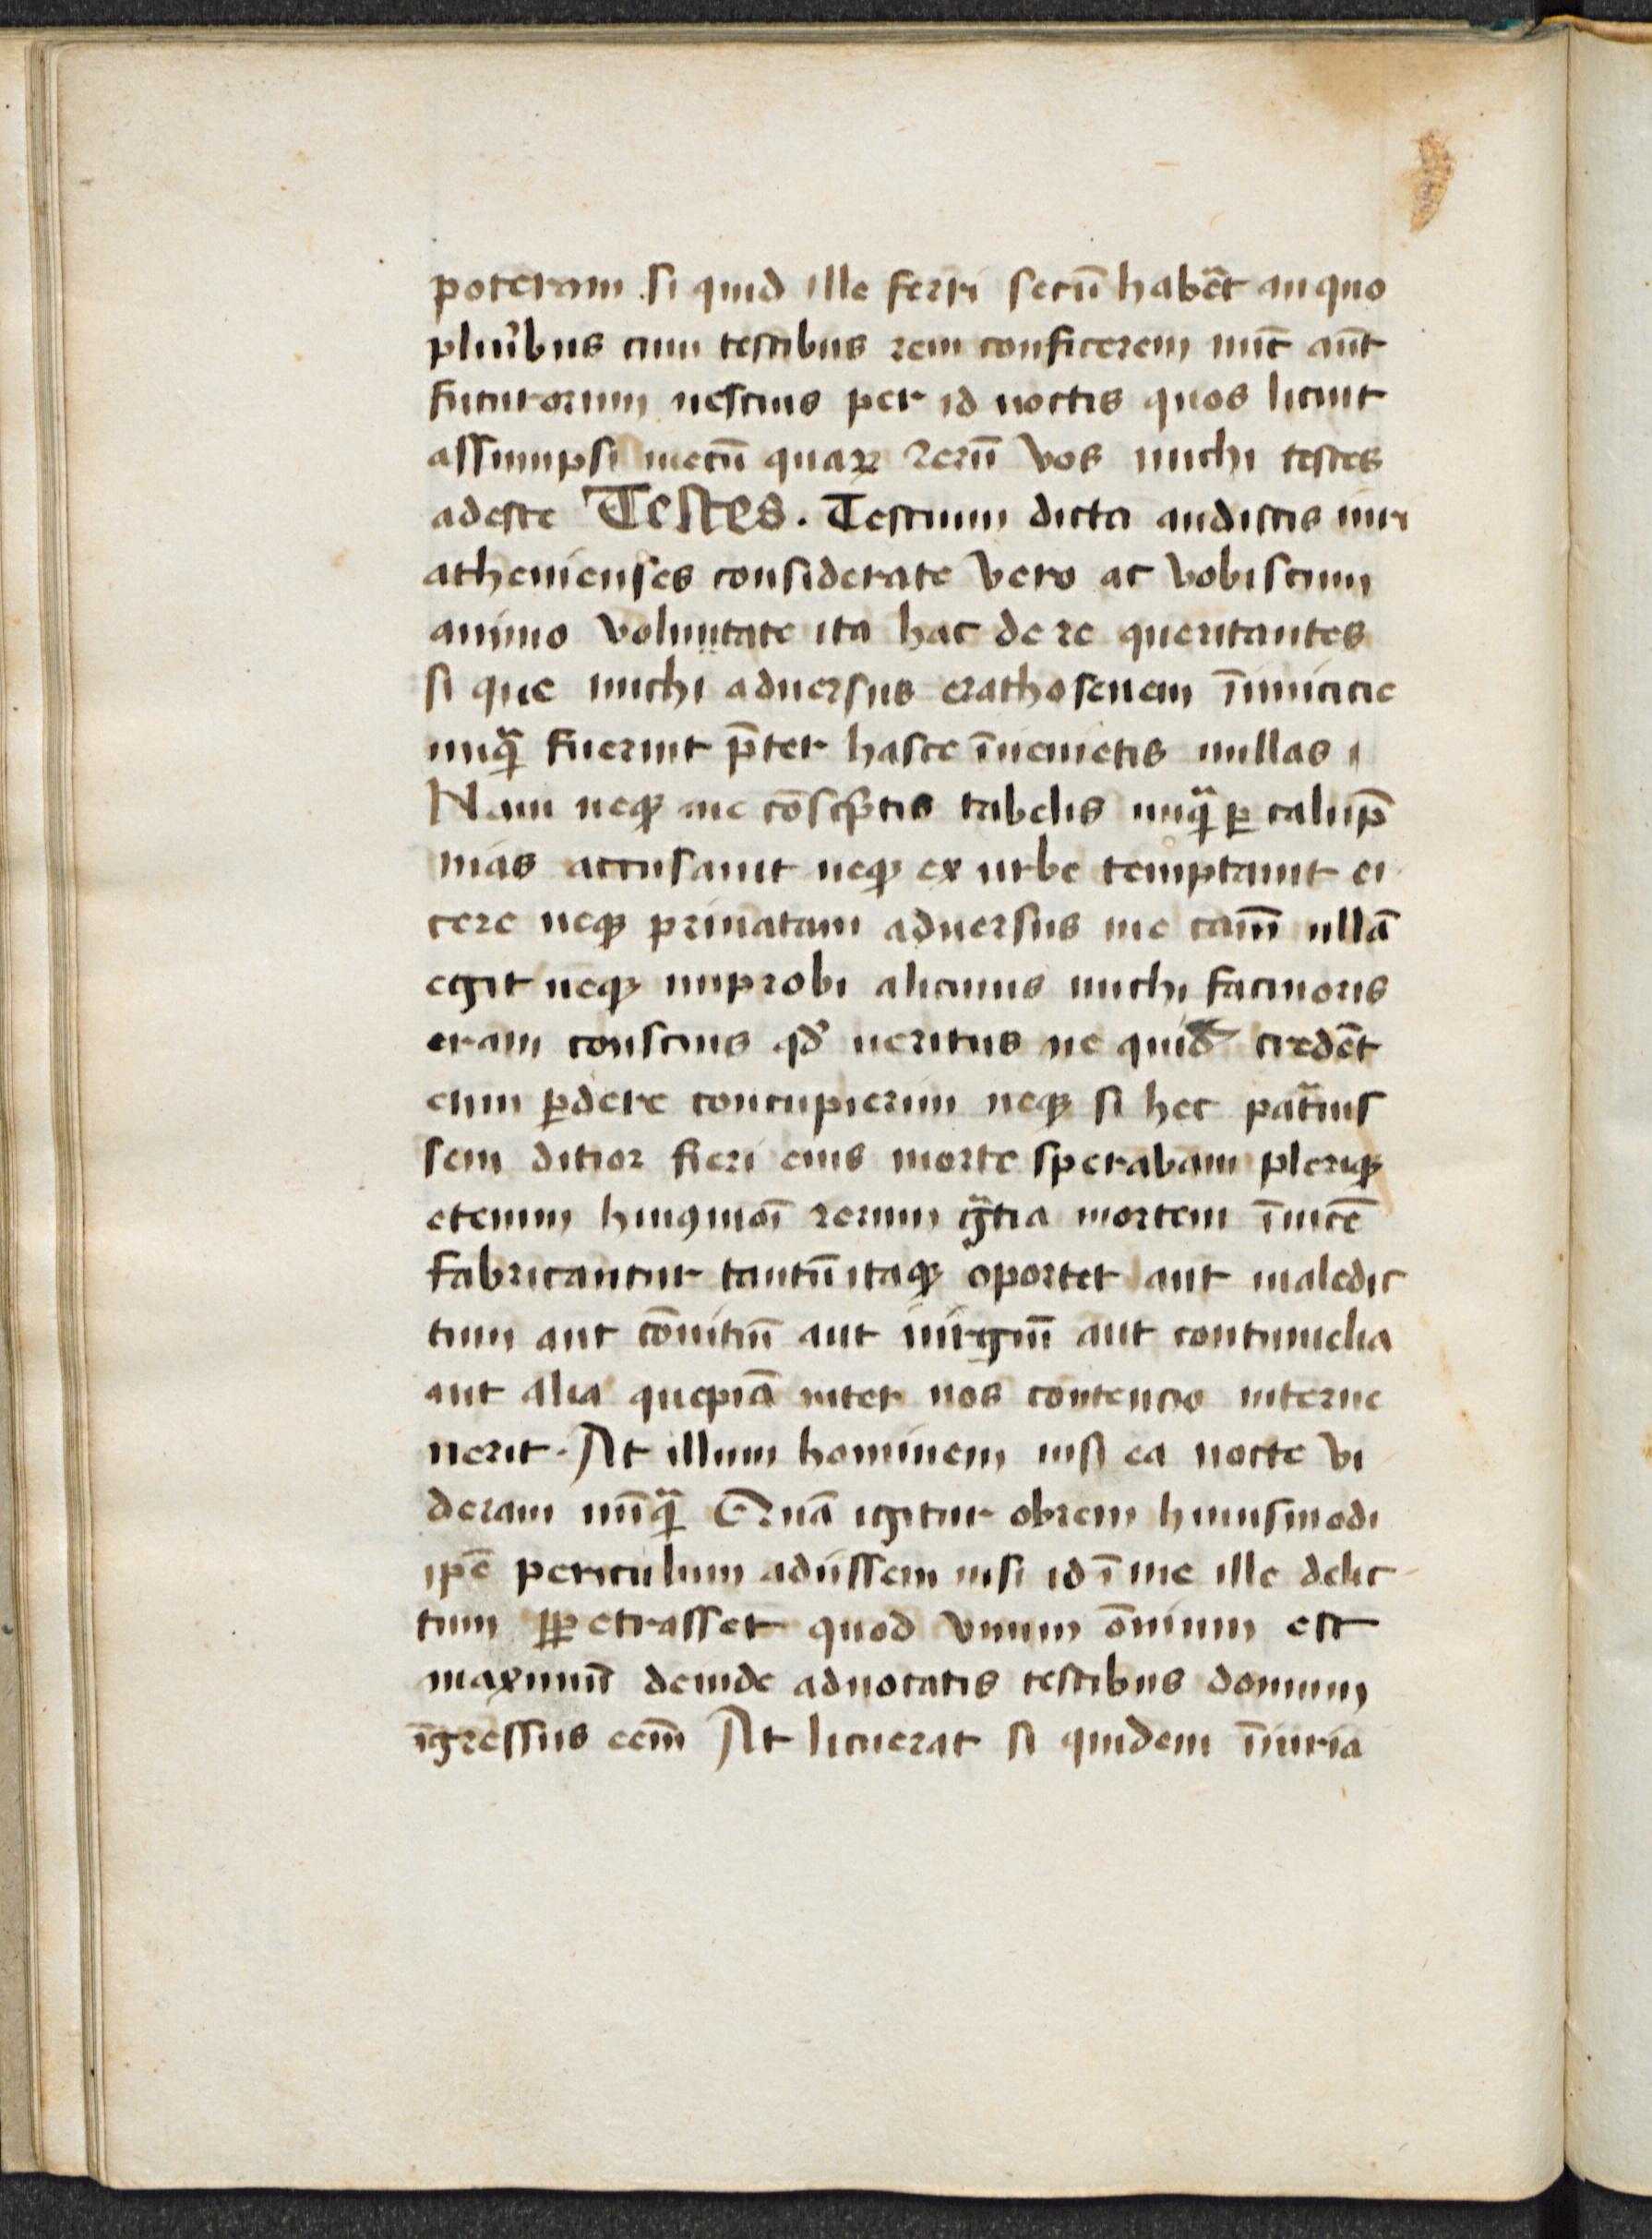 poteram si quid ille ferri secū habēt an quo
plurībus cum testibus rem conficerem nūc aūt
futurorum nescius per id noctis quos licuit
assumpsi mecū quaꝝ rerū vos michi testes
adeste Testes. Testium dicta audistis uiri
athenienses considerate vero ac vobiscum
animo voluntate ita hac de re queritantes
si que michi aduersus erathosenem īimicicie
nuqᷓ fuerint p̄ter hasce īuenietis nullas
Nam neqꝫ me cōscptis tabelis nuqᷓ ꝑ calump̄
nias accusauit neqꝫ ex urbe temptauit ei
cere neqꝫ priuatam aduersus me cam̄ ullā
egit neqꝫ improbi alicuius michi facinoris
eram conscius qđ ueritus ne quid credēt
eum ꝑdere concupierim neqꝫ si hec patᷓuis
sem ditior fieri eius morte sperabam pleriqꝫ
etenim huiꝰmoī rerum gᷓtia mortem īuicē
fabricantur tantū itaqꝫ oportet aut maledic
tum aut cōuitiū aut iurgiū aut contumelia
aut alia quepiā inter nos contencio interue
nerit. At illum hominem nisi ea nocte vi
deram nūqᷓ Quā igitur obrem huiusmodi
ip̄e periculum adiissem nisi id ī me ille delic
tum ꝑpetrasset quod vnum ōnium est
maximū deinde aduocatis testibus domum
īgressus eem̄ At licuerat si quidem īiuria